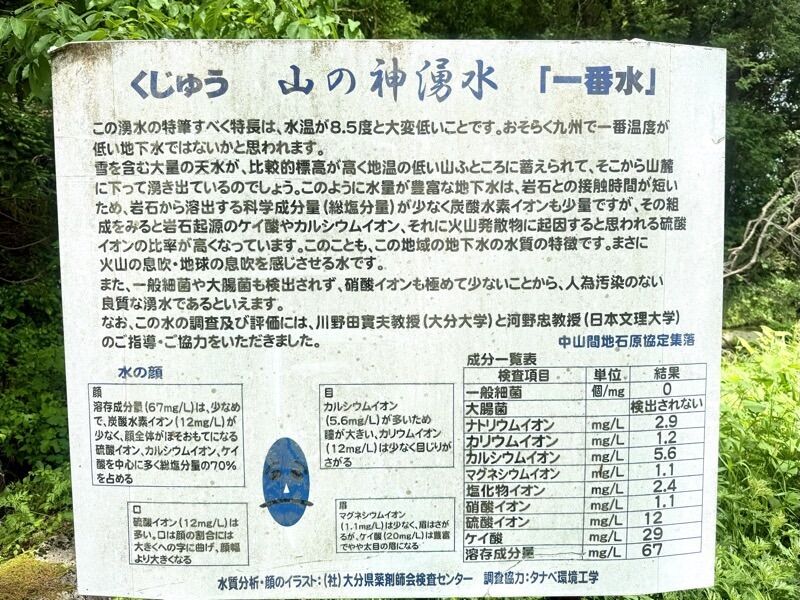 くじゅう 山の神湧水 「一番水」
この湧水の特筆すべく特長は、水温が8.5度と大変低いことです。おそらく九州で一番温度が
低い地下水ではないかと思われます。
雪を含む大量の天水が、比較的標高が高く地温の低い山ふところに蓄えられて、そこから山麓
に下って湧き出ているのでしょう。このように水量が豊富な地下水は、岩石との接触時間が短い
ため、岩石から溶出する科学成分量(総塩分量)が少なく炭酸水素イオンも少量ですが、その組
成をみると岩石起源のケイ酸やカルシウムイオン、それに火山発散物に起因すると思われる硫酸
イオンの比率が高くなっています。このことも、この地域の地下水の水質の特徴です。まさに
火山の息吹・地球の息吹を感じさせる水です。
また、一般細菌や大腸菌も検出されず、硝酸イオンも極めて少ないことから、人為汚染のない
良質な湧水であるといえます。
なお、この水の調査及び評価には、川野田實夫教授(大分大学)と河野忠教授(日本文理大学)
のご指導・ご協力をいただきました。
中山間地石原協定集落
水の顔
顔
溶存成分量(67mg/L)は、少なめ
で、炭酸水素イオン(12mg/L)が
少なく、顔全体がほそおもてになる
硫酸イオン、カルシウムイオン、ケイ
酸を中心に多く総塩分量の70%
を占める
目
カルシウムイオン
(5.6mg/L)が多いため
瞳が大きい、カリウムイオン
(12mg/L)は少なく目じりが
さがる
口
硫酸イオン(12mg/L)は
多い。口は顔の割合には
大きくへの字に曲げ、顔幅
より大きくなる
眉
マグネシウムイオン
(1.1mg/L)は少なく、眉はさが
るが、ケイ酸(20mg/L)は豊富
でやや太目の眉になる
成分一覧表
検査項目 単位 結果
一般細菌 個/mg 0
大腸菌 検出されない
ナトリウムイオン mg/L 2.9
カリウムイオン mg/L 1.2
カルシウムイオン mg/L 5.6
マグネシウムイオン mg/L 1.1
塩化物イオン mg/L 2.4
硝酸イオン mg/L 1.1
硫酸イオン mg/L 12
ケイ酸 mg/L 29
溶存成分量 mg/L 67
水質分析・顔のイラスト:(社)大分県薬剤師会検査センター 調査協力:タナベ環境工学